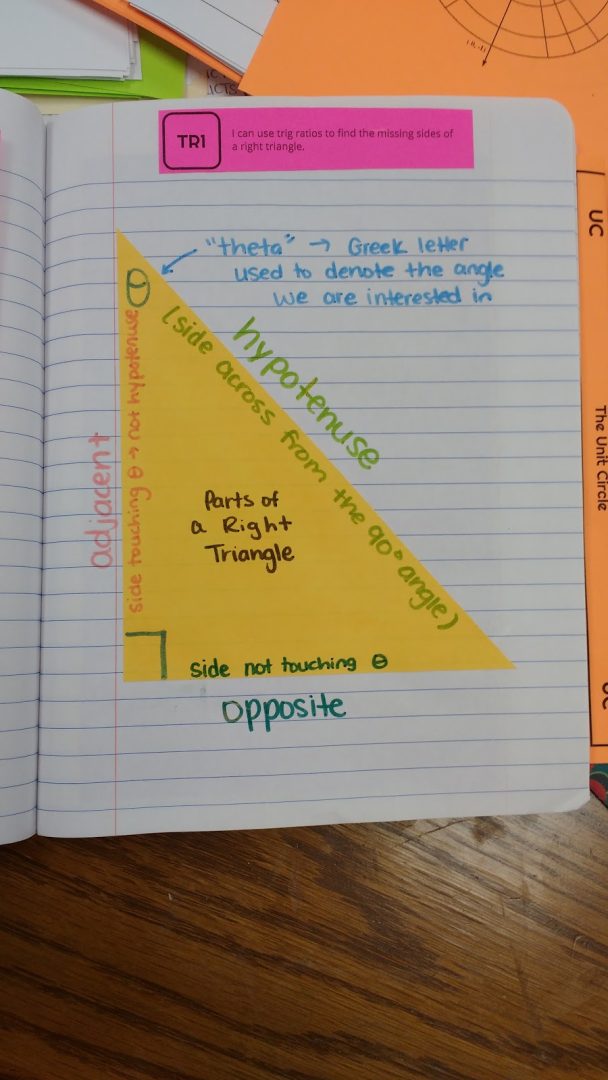 TR1
I can use trig ratios to find the missing sides of
a right triangle.
"theta" → Greek letter
used to denote the angle
we are interested in
θ
hypotenuse
(side across from the 90° angle)
adjacent
side touching θ → not hypotenuse
Parts of
a Right
Triangle
side not touching θ
opposite
UC
The Unit Circle